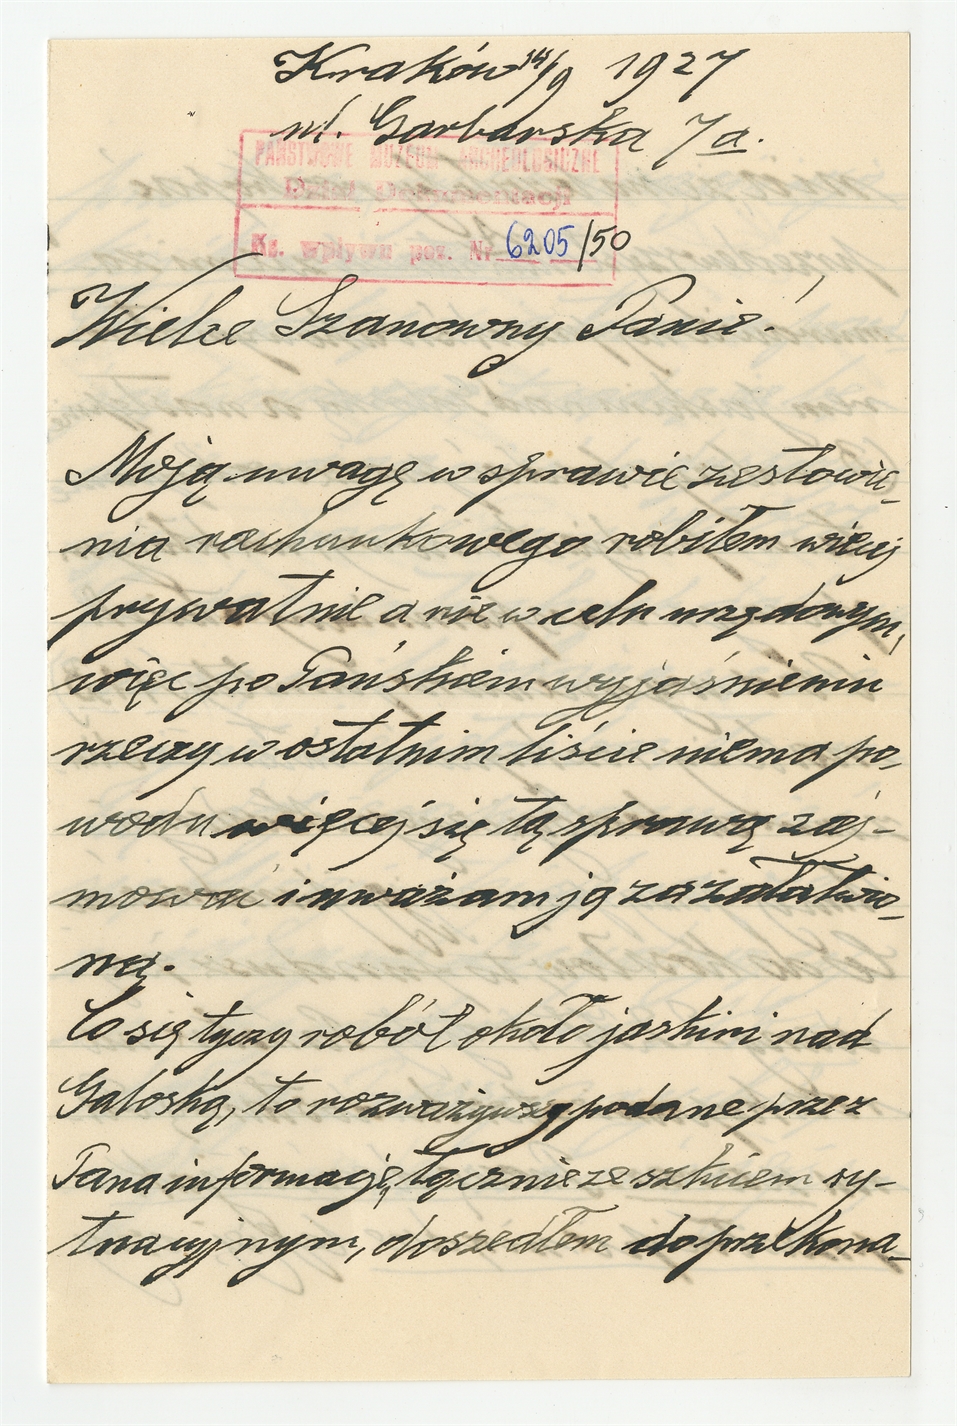 Kraków 14/9 1927
ul. Garbarska 7a.
PAŃSTWOWE MUZEUM ARCHEOLOGICZNE
Dział Dokumentacji
Ks. wpływu poz. Nr 6205/50
Wielce Szanowny Panie!
Moją uwagę w sprawie zestawie-
nia rachunkowego robiłem więcej
prywatnie a nie w celu urzędowym,
więc po Pańskiem wyjaśnieniu
rzeczy w ostatnim liście niema po-
wodu więcej się tą sprawą zaj-
mować i uważam ją za załatwio-
ną.
Co się tyczy robót około jaskini nad
Galoską, to rozważywszy podane przez
Pana informacje, łącznie ze szkicem sy-
tuacyjnym, doszedłem do przekona-